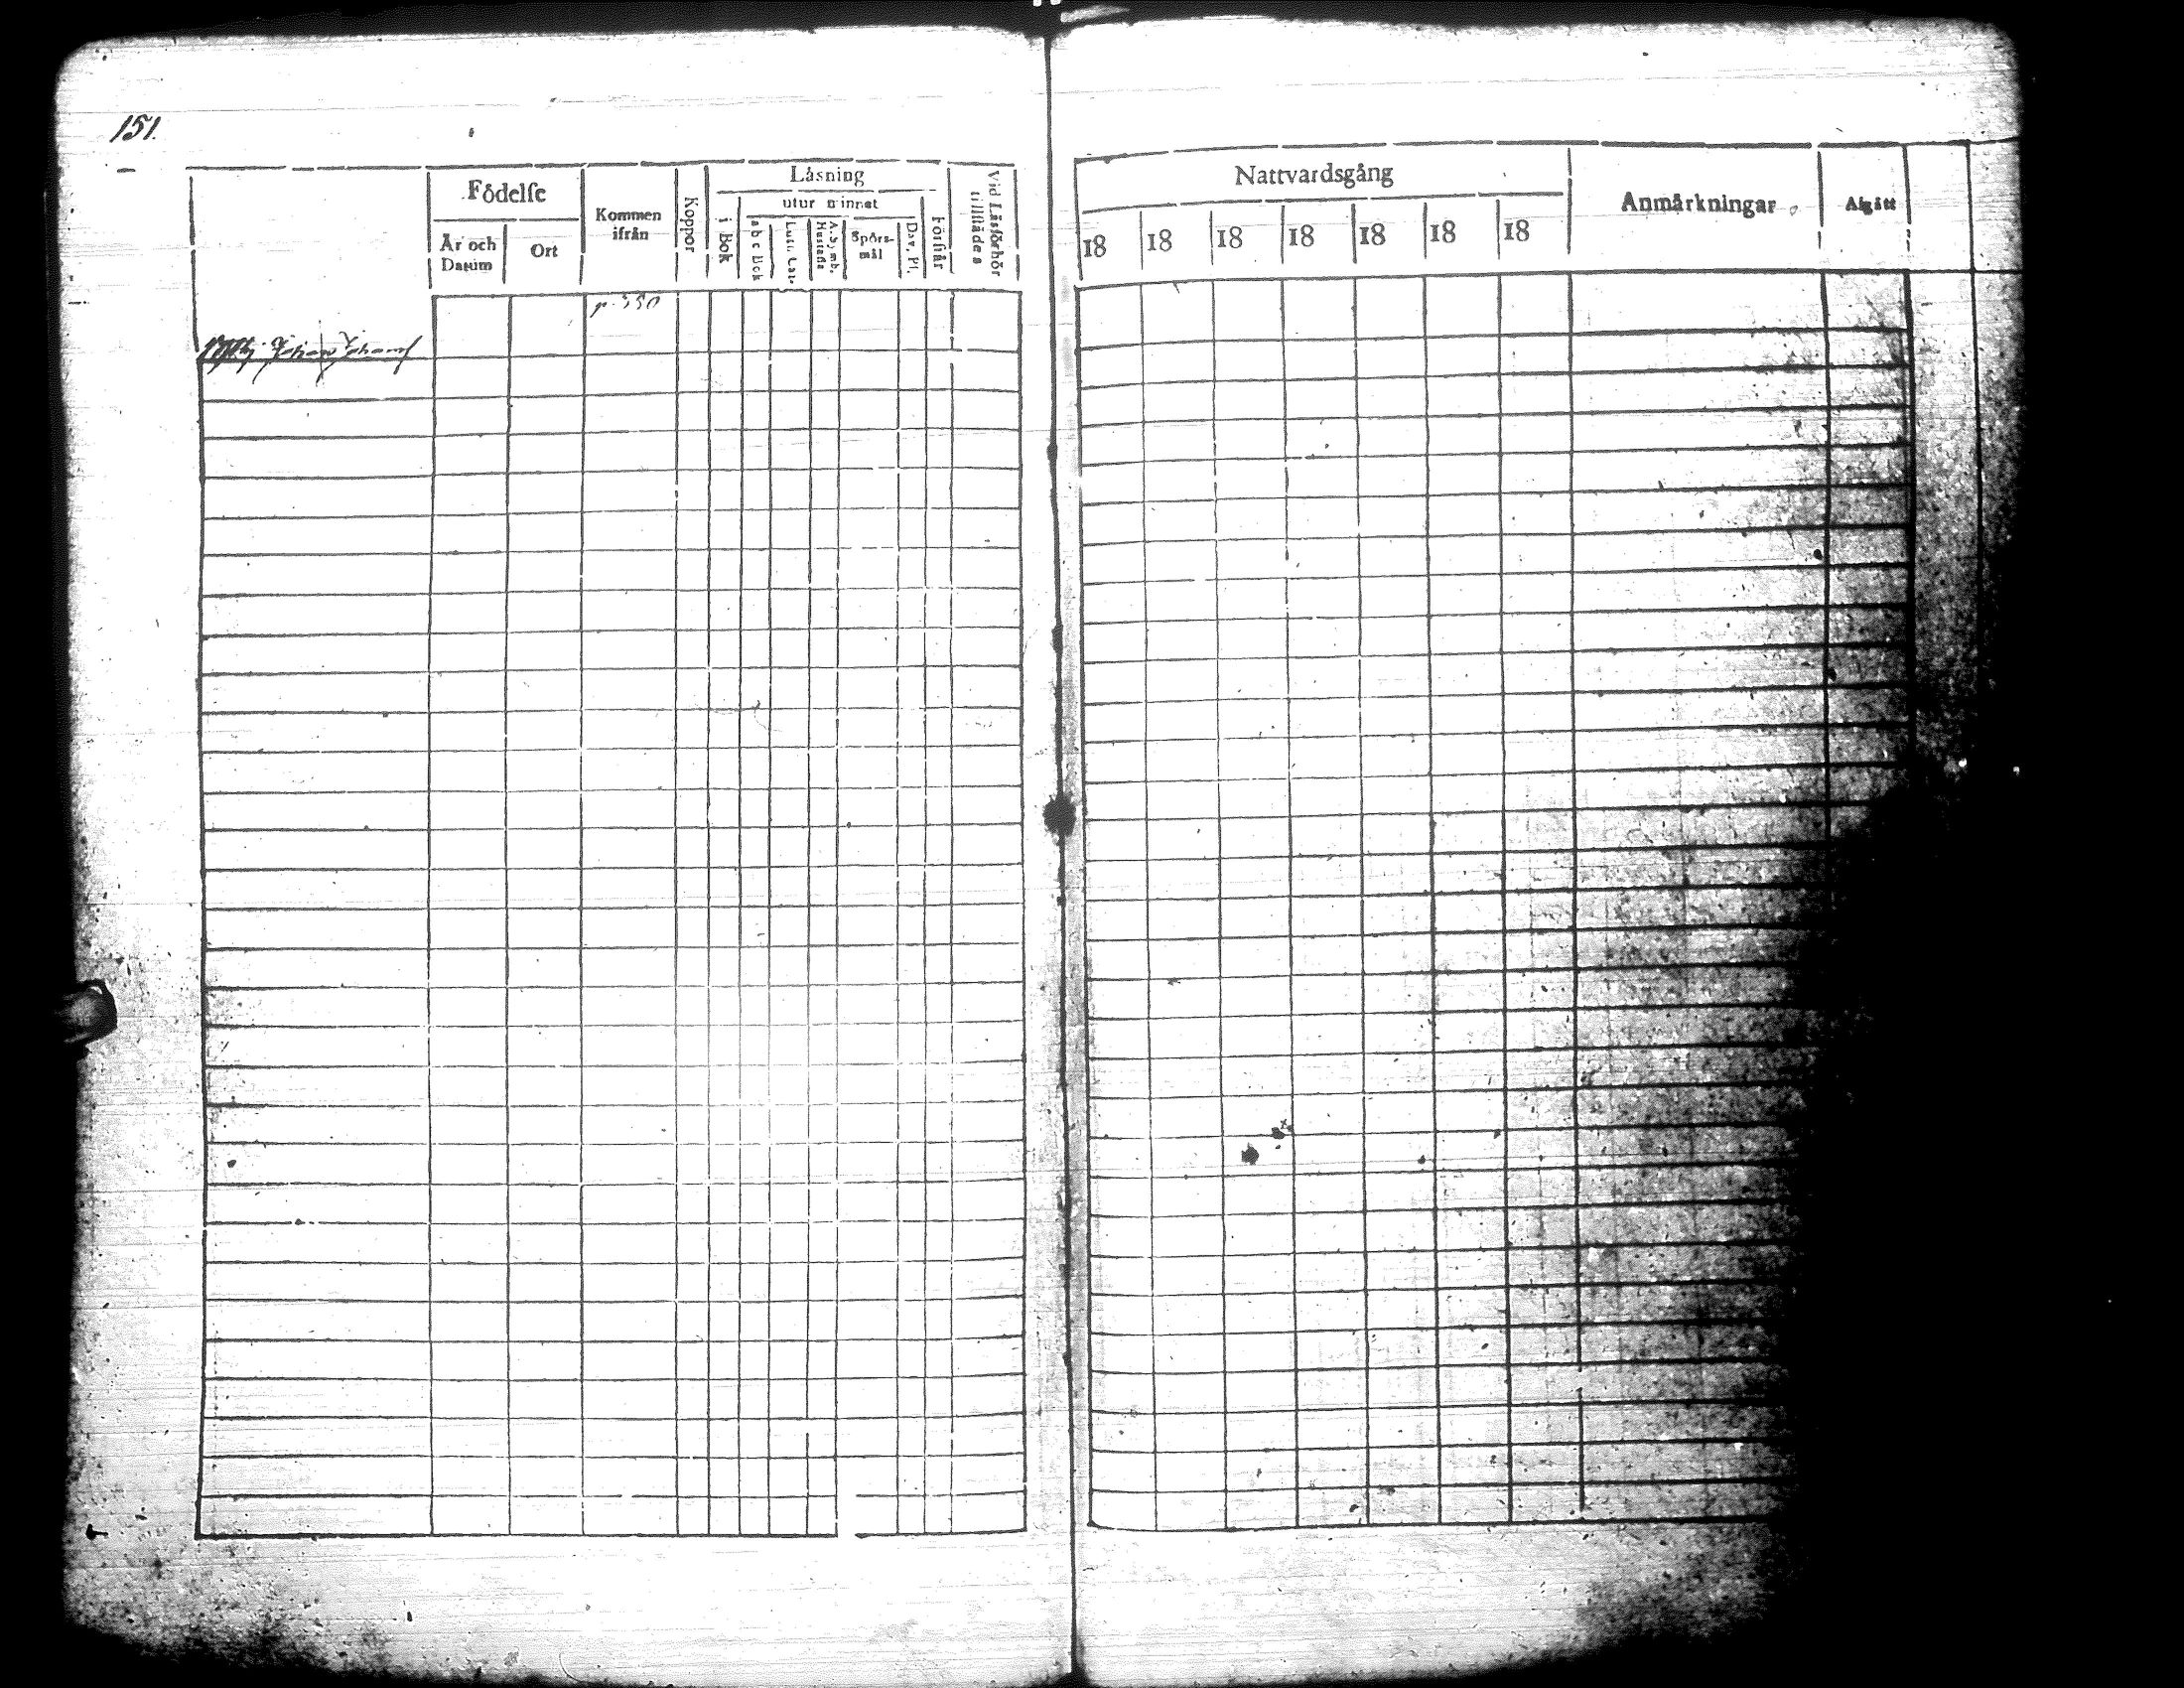 151.
Födelſe
År och Datum
Ort
Kommen ifrån
Koppor
Låsning
i Bok
utur minnet
a b c Bok
Luth. Cat.
A. Symb. Hustafla
Spörs-mål
Dav. Pſ.
Förſtår
Vid Läsförhör tillſtädes
Nattvardsgång
18 18 18 18 18 18 18
Anmärkningar
Afgått
p. 350
Johan Johans